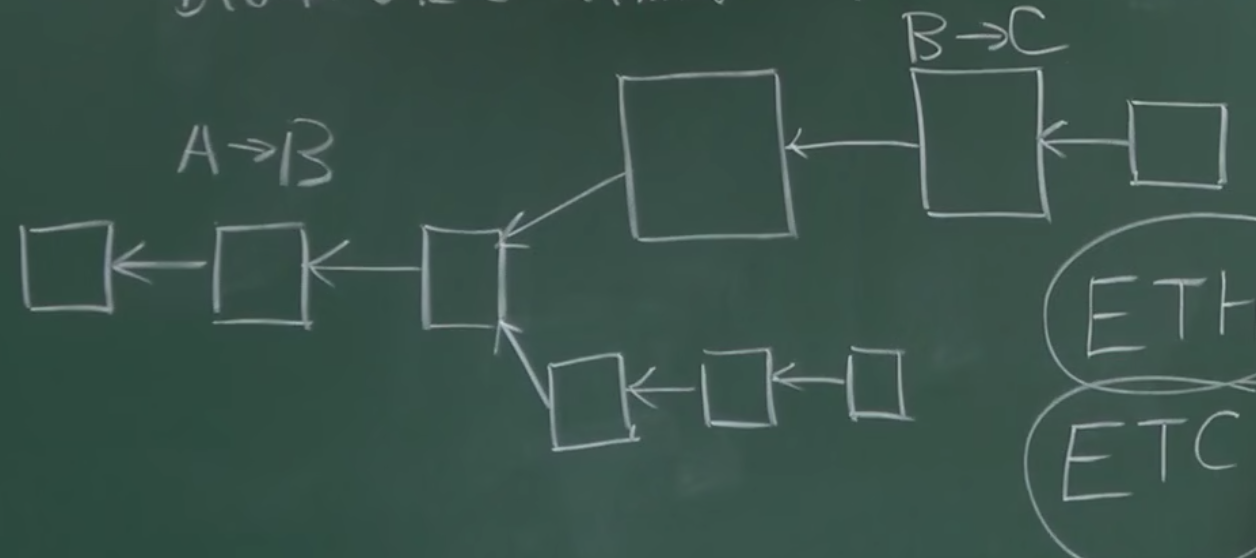 B→C
A→B
ETH
ETC